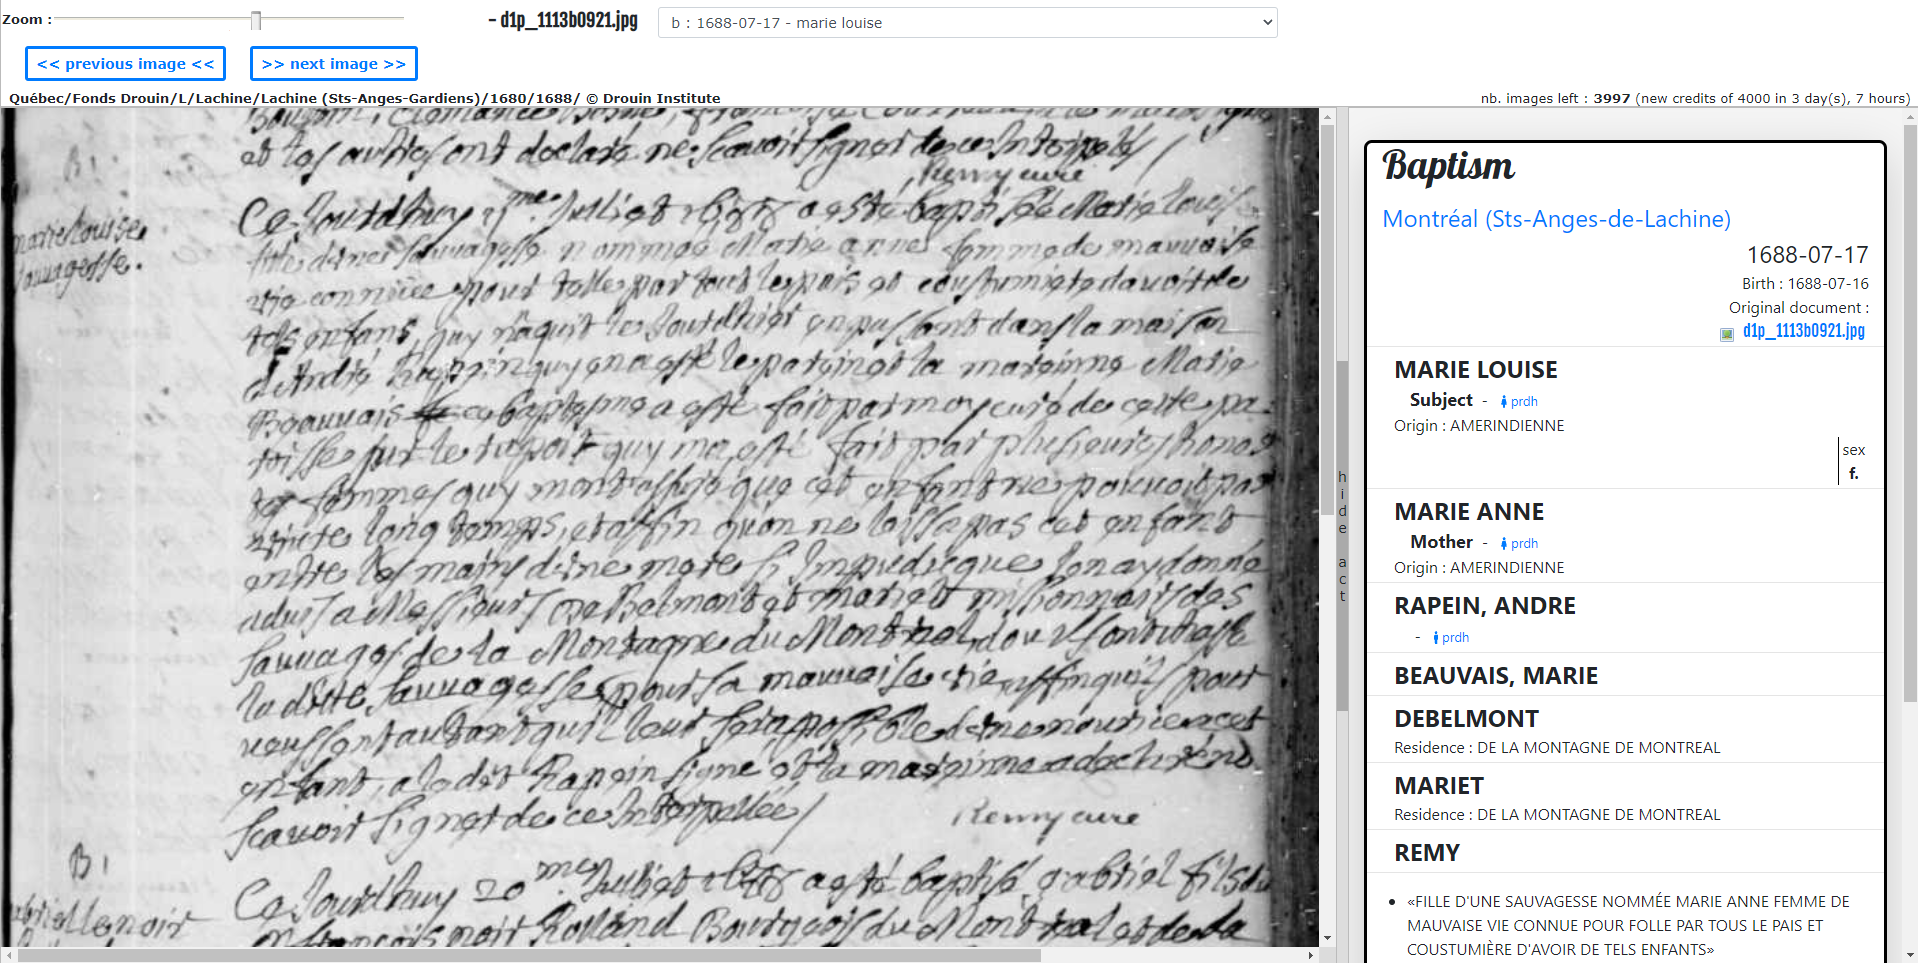 Zoom :
- d1p_1113b0921.jpg
b : 1688-07-17 - marie louise
<< previous image <<
>> next image >>
Québec/Fonds Drouin/L/Lachine/Lachine (Sts-Anges-Gardiens)/1680/1688/ © Drouin Institute
nb. images left : 3997 (new credits of 4000 in 3 day(s), 7 hours)
et les autres ont declaré ne scavoir signer de ce Interpelé
Remy curé
B1
marie louise
sauvagesse.
Ce Jourdhuy 17me Juillet 1688 a esté baptisée Marie louise
fille d'une sauvagesse nommée Marie anne femme de mauvaise
vie connüee pour folle par tout le païs et coustumiere d'avoir de
tels enfans, quy naquit le Jourdhier en passant dans la maison
d'André Rapein quy en a esté le parein et la mareinne Marie
Beauvais ce baptesme a esté fait par moy curé de cette pa-
roisse sur le raport quy m'a esté fait par plusieurs hones-
tes femmes quy m'ont assuré que cet enfant ne pouvoit pas
vivre long temps, et affin qu'on ne laissa pas cet enfant
entre les mains d'une mere si Impudicque Jen ay donné
advis a Messieurs de Belmont et mariet missionnaires des
sauvages de la Montagne du Montreal, d'ou
ladite sauvagesse pour sa mauvaise vie affin qu'ils
enfant, a ledit Rapein signé et la mareinne a declaré ne
scavoir signer de ce Interpellée /
Remy curé
B1
gabriel lenoir
Ce Jourdhuy 20me Juillet 1688 a esté baptisé gabriel fils de
françois noir Rolland Bourgeois du Montreal et de la
hide act
Baptism
Montréal (Sts-Anges-de-Lachine)
1688-07-17
Birth : 1688-07-16
Original document :
d1p_1113b0921.jpg
MARIE LOUISE
Subject - prdh
Origin : AMERINDIENNE
sex
f.
MARIE ANNE
Mother - prdh
Origin : AMERINDIENNE
RAPEIN, ANDRE
- prdh
BEAUVAIS, MARIE
DEBELMONT
Residence : DE LA MONTAGNE DE MONTREAL
MARIET
Residence : DE LA MONTAGNE DE MONTREAL
REMY
• «FILLE D'UNE SAUVAGESSE NOMMÉE MARIE ANNE FEMME DE
MAUVAISE VIE CONNUE POUR FOLLE PAR TOUS LE PAIS ET
COUSTUMIÈRE D'AVOIR DE TELS ENFANTS»